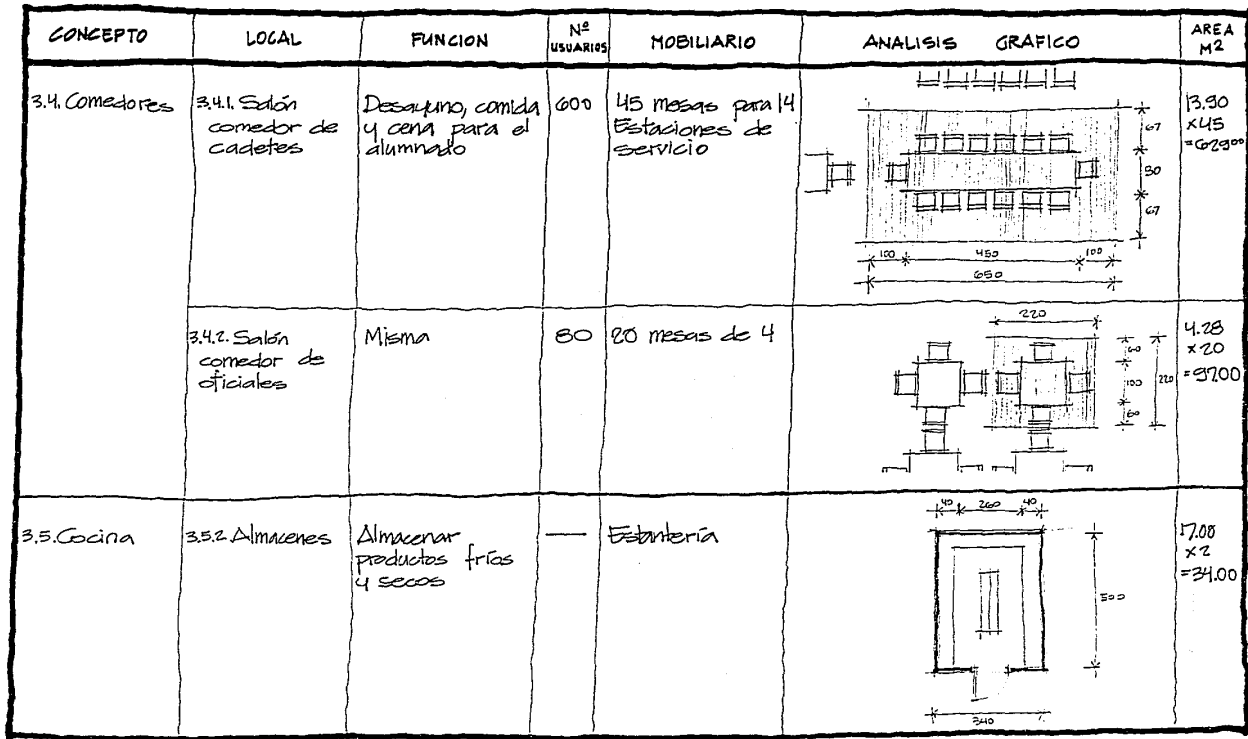 CONCEPTO LOCAL FUNCION Nº USUARIOS MOBILIARIO ANALISIS GRAFICO AREA M2
3.4. Comedores
3.4.1. Salón
comedor de
cadetes
Desayuno, comida
y cena para el
alumnado
600
45 mesas para 14
Estaciones de
servicio
67
80
67
100 450 100
650
13.90
x45
=629⁰⁰
3.4.2. Salón
comedor de
oficiales
Misma
80
20 mesas de 4
220
60
100
60
220
4.28
x20
=97.00
3.5. Cocina
3.5.2 Almacenes
Almacenar
productos fríos
y secos
—
Estantería
40 260 40
500
340
17.00
x2
=34.00